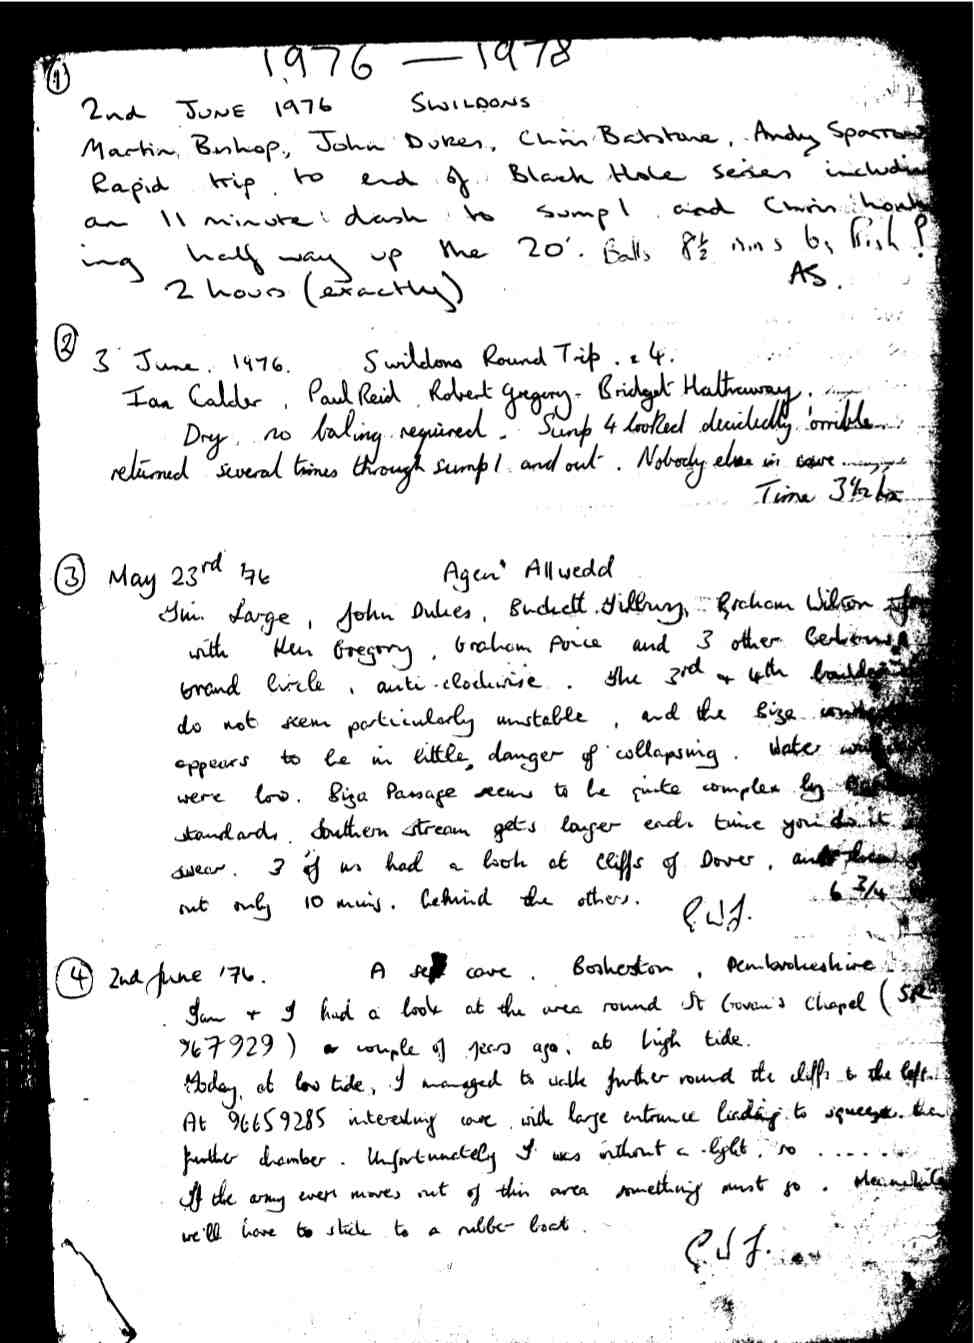 1976 — 1978
①
2nd JUNE 1976 SWILDONS
Martin Bishop, John Dukes, Chris Batstone, Andy Sparrow
Rapid trip to end of Black Hole series includin
an 11 minute dash to sump 1 and Chris honk
ing half way up the 20'. Balls 8½ mins by Fish!
2 hours (exactly) AS.
②
3 June. 1976. Swildons Round Trip. 4.
Ian Calder, Paul Reid, Robert Gregory - Bridget Hathaway.
Dry, no baling required. Sump 4 looked decidedly 'orrible
returned several times through sump 1 and out. Nobody else in cave
Time 3½ hrs
③ May 23rd '76 Agen Allwedd
Tim Large, John Dukes, Buckett Tilbury, Graham Wilton
with Ken Gregory, Graham Price and 3 other
Grand Circle, anti-clockwise. The 3rd + 4th
do not seem particularly unstable, and the Biza
appears to be in little danger of collapsing. Water
were low. Biza Passage seems to be quite complex by
standards. Southern stream gets longer each time you do it
swear. 3 of us had a look at Cliffs of Dover, and
out only 10 mins. behind the others. 6 3/4
④ 2nd June '76. A sea cave. Bosherston, Pembrokeshire
Jan + I had a look at the area round St Govan's Chapel (SR
967929) a couple of years ago, at high tide.
Today, at low tide, I managed to walk further round the cliffs to the left.
At 96659285 interesting cave with large entrance leading to squeeze then
further chamber. Unfortunately I was without a light, so .....
If the army ever moves out of this area something must go. Meanwhile
we'll have to stick to a rubber boat.